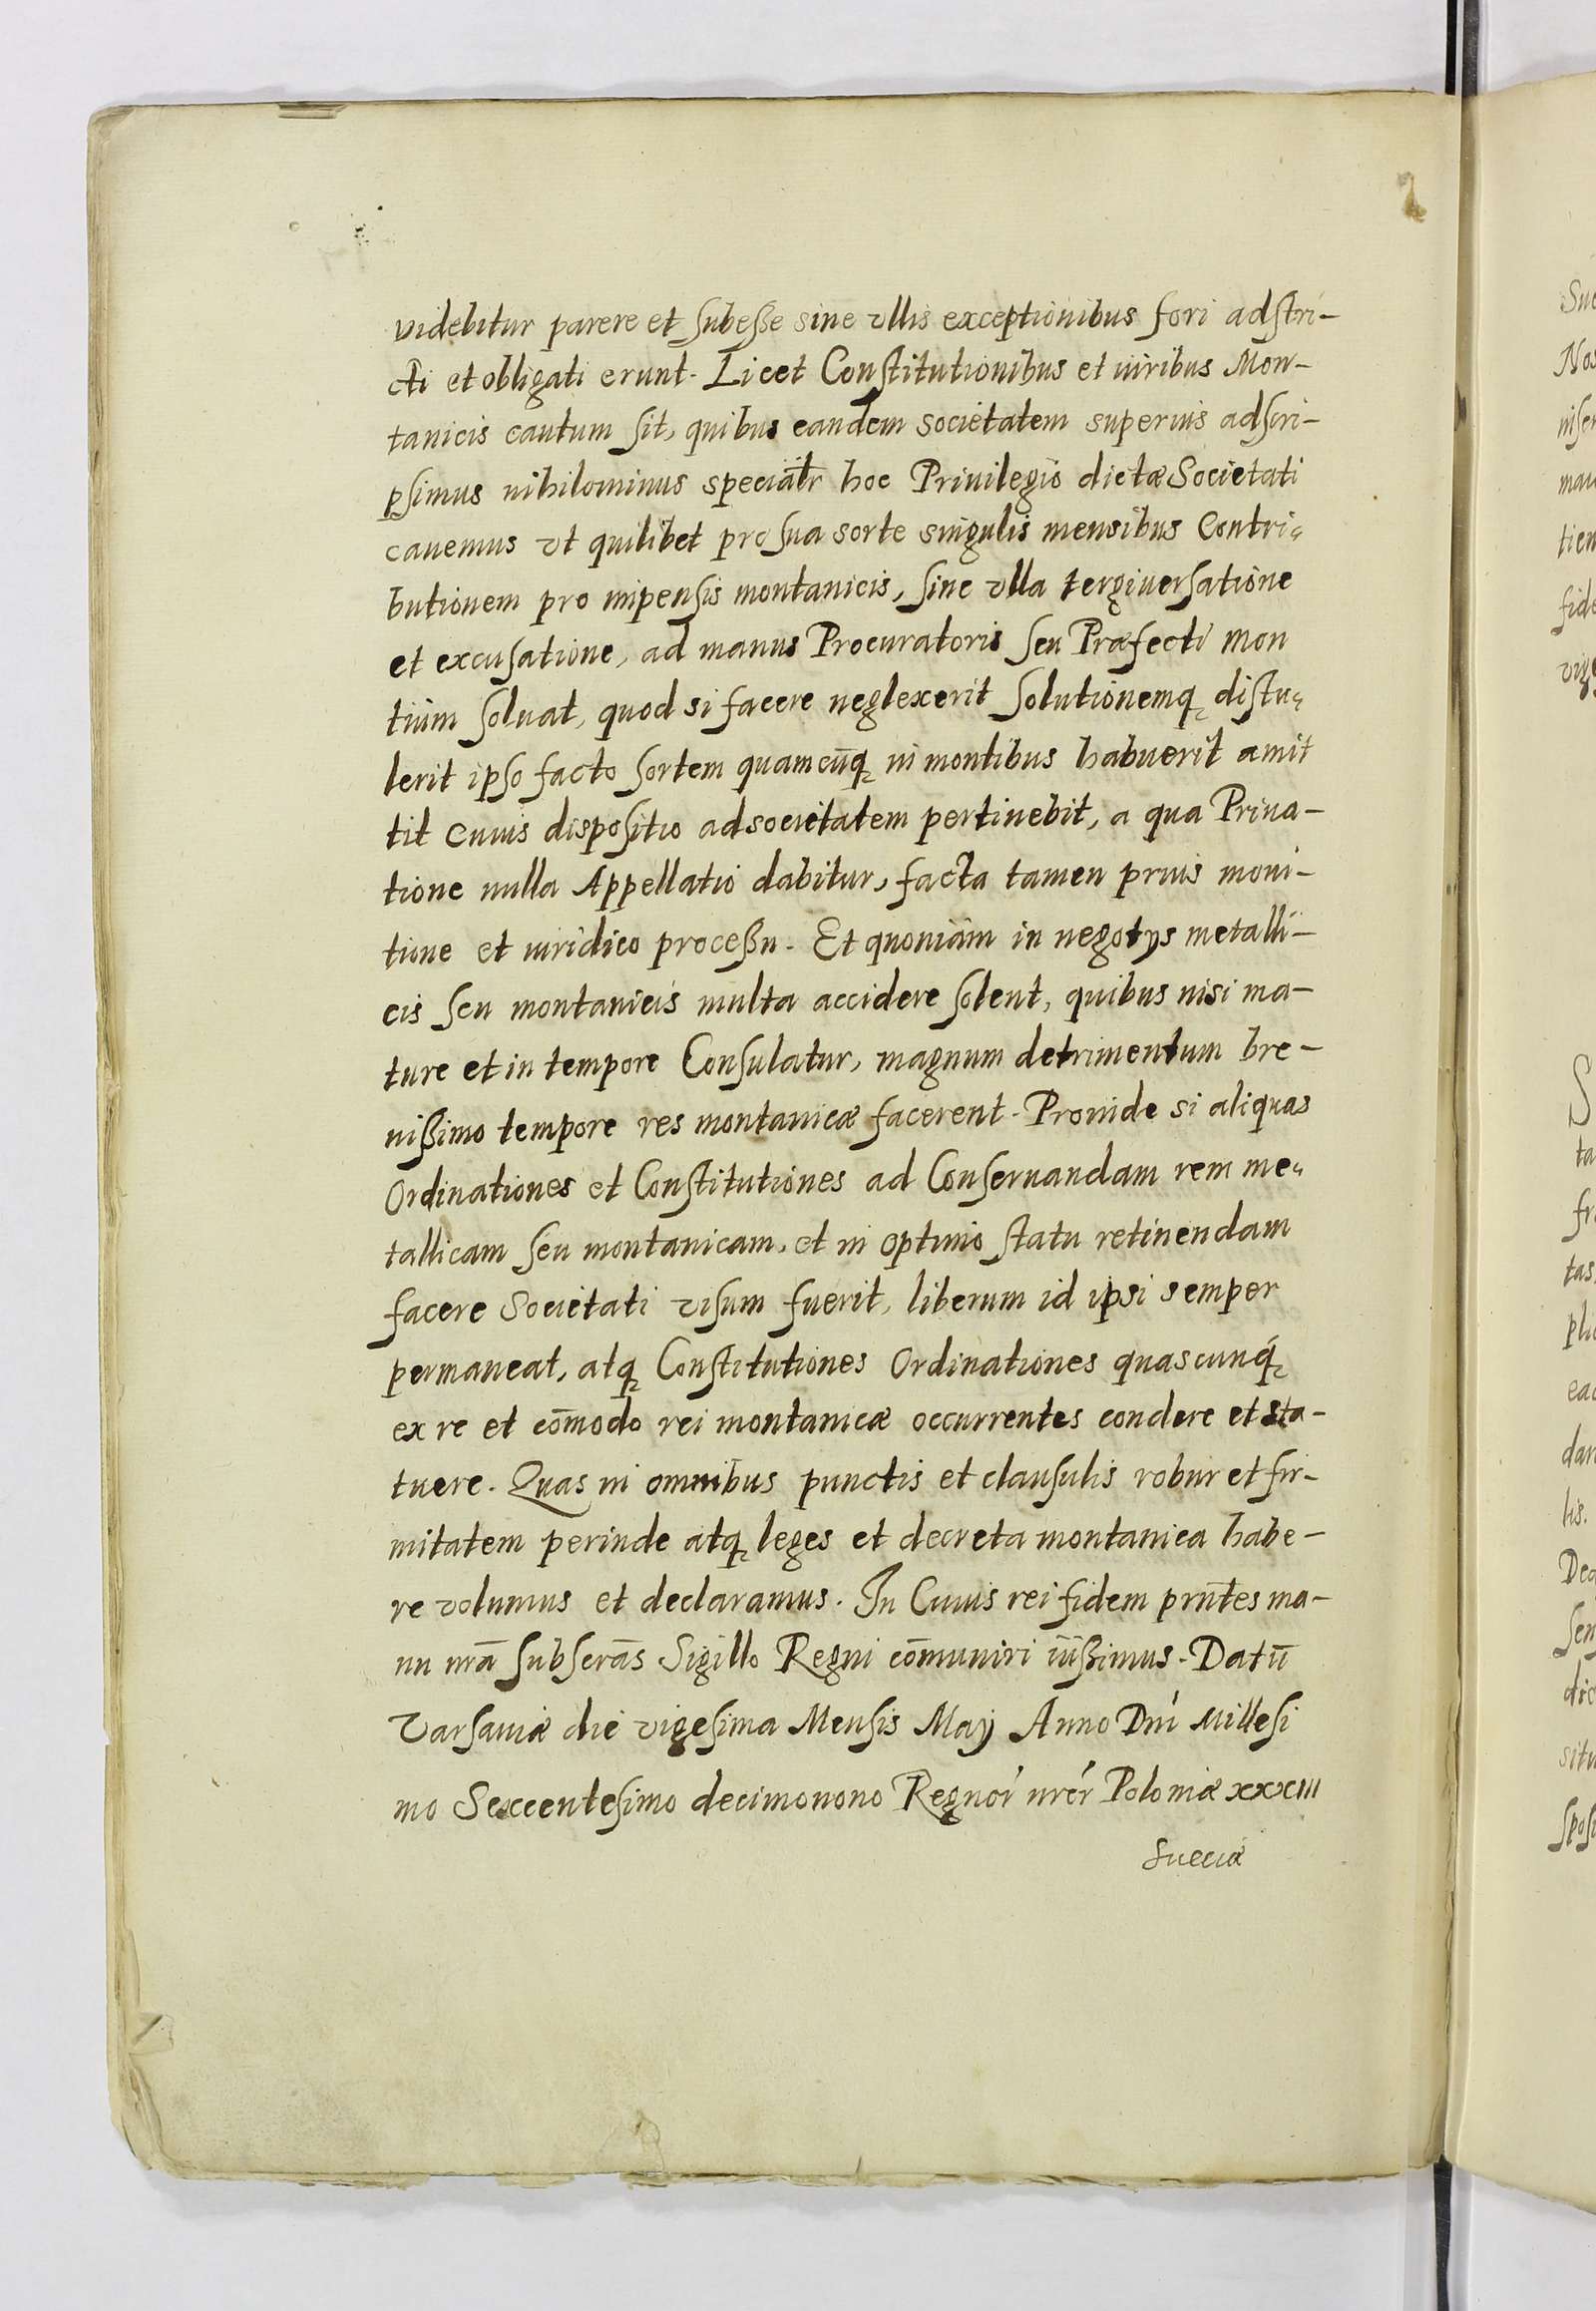 videbitur parere et subesse sine vllis exceptionibus fori adstri-
cti et obligati erunt. Licet Constitutionibus et iuribus Mon-
tanicis cautum sit, quibus eandem societatem superius adscri-
psimus nihilominus specialr hoc Priuilegio dictæ Societati
cauemus vt quilibet pro sua sorte singulis mensibus Contri-
butionem pro impensis montanicis, sine vlla tergiuersatione
et excusatione, ad manus Procuratoris seu Præfecti Mon
tium soluat, quod si facere neglexerit solutionemq distu-
lerit ipso facto sortem quamcūq in montibus habuerit amit
tit Cuius dispositio ad societatem pertinebit, a qua Priua-
tione nulla Appellatio dabitur, facta tamen prius moni-
tione et iuridico processu. Et quoniam in negotÿs metalli-
cis seu montanicis multa accidere solent, quibus nisi ma-
ture et in tempore Consulatur, magnum detrimentum bre-
uissimo tempore res montanicæ facerent. Prouide si aliquas
Ordinationes et Constitutiones ad Conseruandam rem me-
tallicam seu montanicam, et in optimo statu retinendam
facere Societati visum fuerit, liberum id ipsi semper
permaneat, atq Constitutiones Ordinationes quascunq
ex re et cōmodo rei montanicæ occurrentes condere et sta-
tuere. Quas in omnibus punctis et clausulis robur et fir-
mitatem perinde atq leges et decreta montanica habe-
re volumus et declaramus. In Cuius rei fidem prn̄tes ma-
nu nrā subscrās Sigillo Regni cōmuniri iussimus. Datū
Varsauiæ die vigesima Mensis Maÿ Anno Dni Millesi
mo Sexcentesimo decimonono Regnor nror Poloniæ xxxiii
Sueciæ